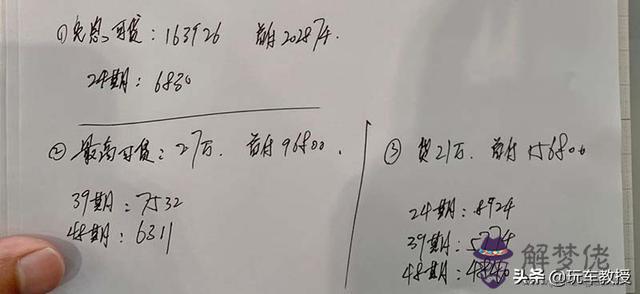 ①免息可贷：163926 首付202874.
24期：6830
②最高可贷：27万. 首付96800.
39期：7532
48期：6311
③贷21万. 首付156800
24期：8924
39期：5774
48期：4840
解梦佬
头条 @玩车教授